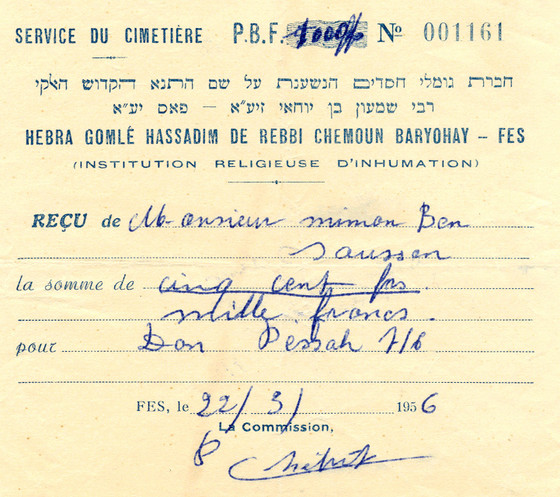 SERVICE DU CIMETIÈRE P.B.F. 1000 frs Nº 001161
חברת גומלי חסדים הנשענת על שם התנא הקדוש האקי
רבי שמעון בן יוחאי זיע״א – פאס יע״א
HEBRA GOMLÉ HASSADIM DE REBBI CHEMOUN BARYOHAY – FES
(INSTITUTION RELIGIEUSE D'INHUMATION)
REÇU de Monsieur mimon Ben
Saussan
la somme de cinq cent frs
mille francs
pour Don Pessah
FES, le 22/3/ 1956
La Commission,